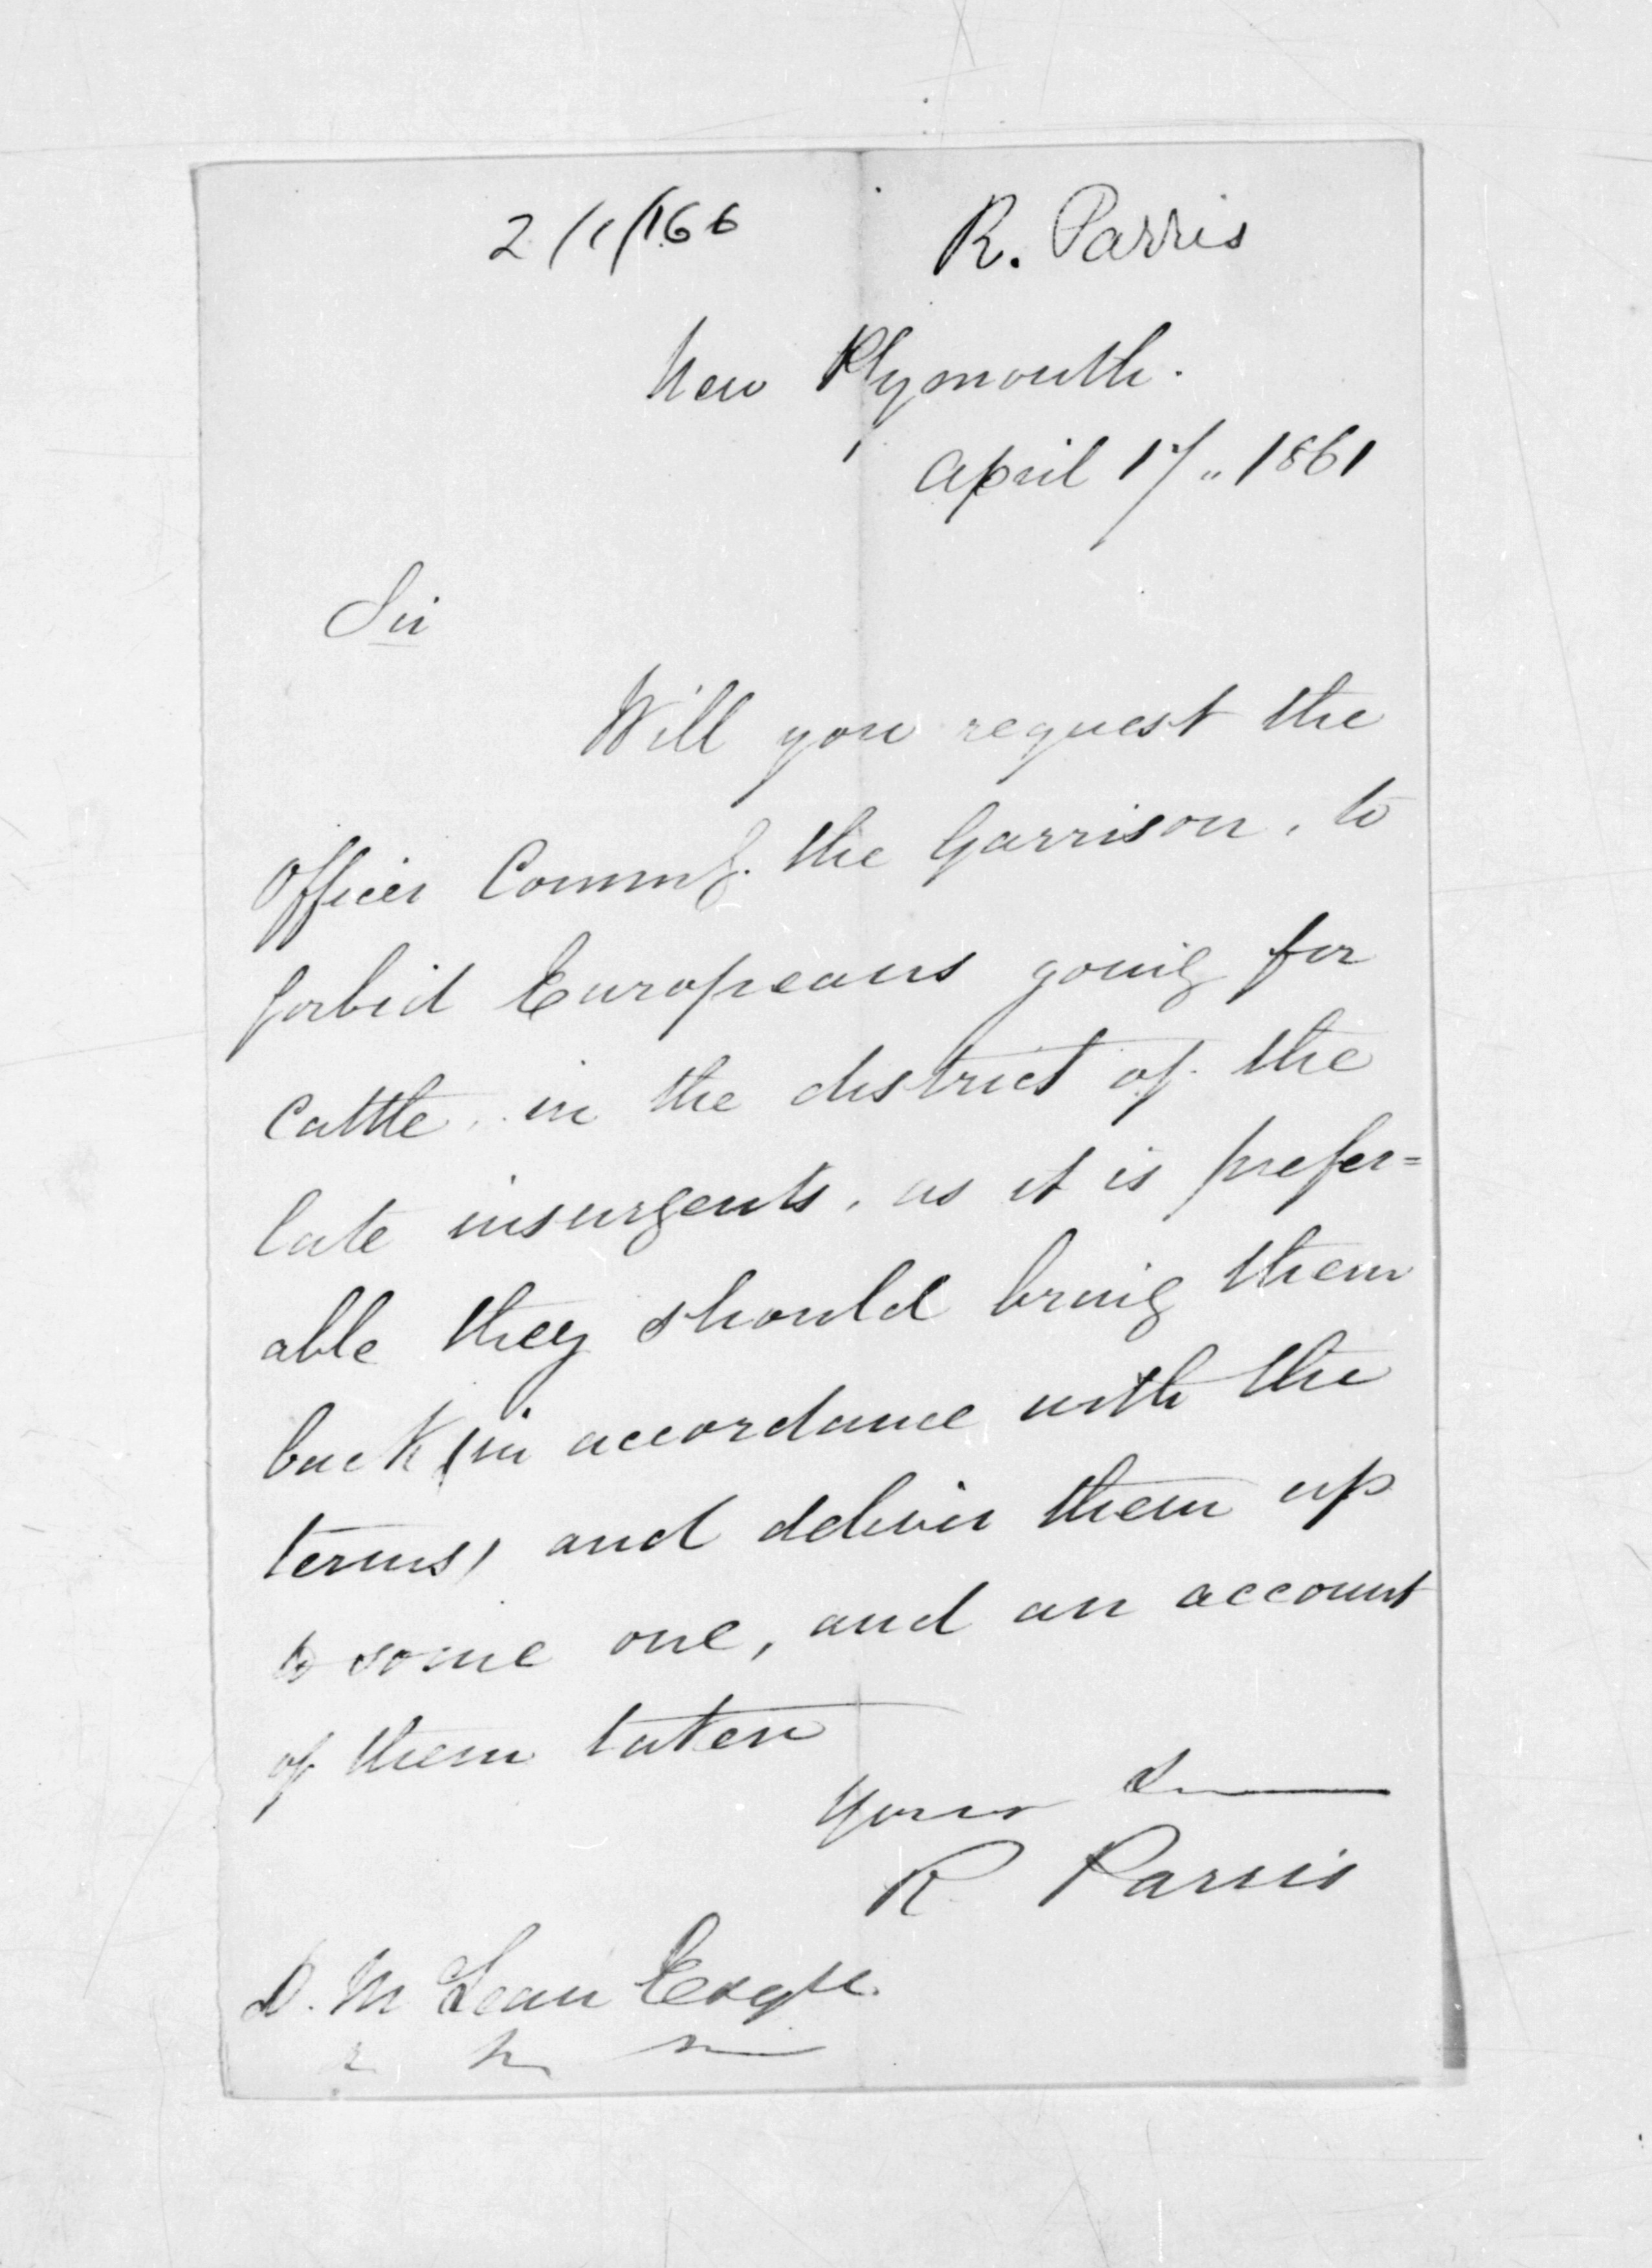 2/1/166 R. Parris
New Plymouth.
April 17 „ 1861
Sir
Will you request the
Officer Commg. the Garrison, to
forbid Europeans going for
Cattle, in the district of the
late insurgents, as it is prefer=
able they should bring them
back (in accordance with the
terms) and deliver them up
to some one, and an account
of them taken
Yours
R Parris
D. McLean Esqre.